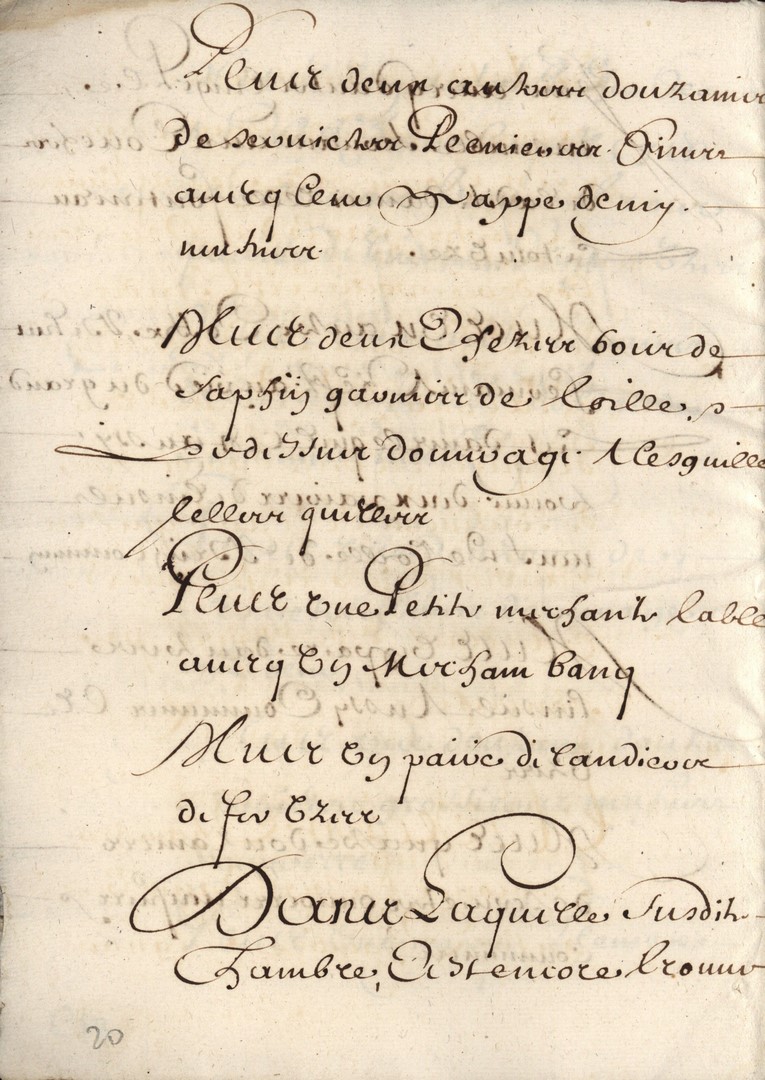 Plus deux autres douzaines
de serviettes Pleniers. Fines
avecq leur Nappe demy
uses
Plus deux Chezes bois de
sapin garnies de toille,
dessus d'ouvrage A lesguille
telles quelles
Plus une Petite meschante table
avecq Un Mescham banq
Plus Un paire de Landiers
de fer Uzés
Dans Laquelle susdite
Chambre, Cest encore trouvé
20